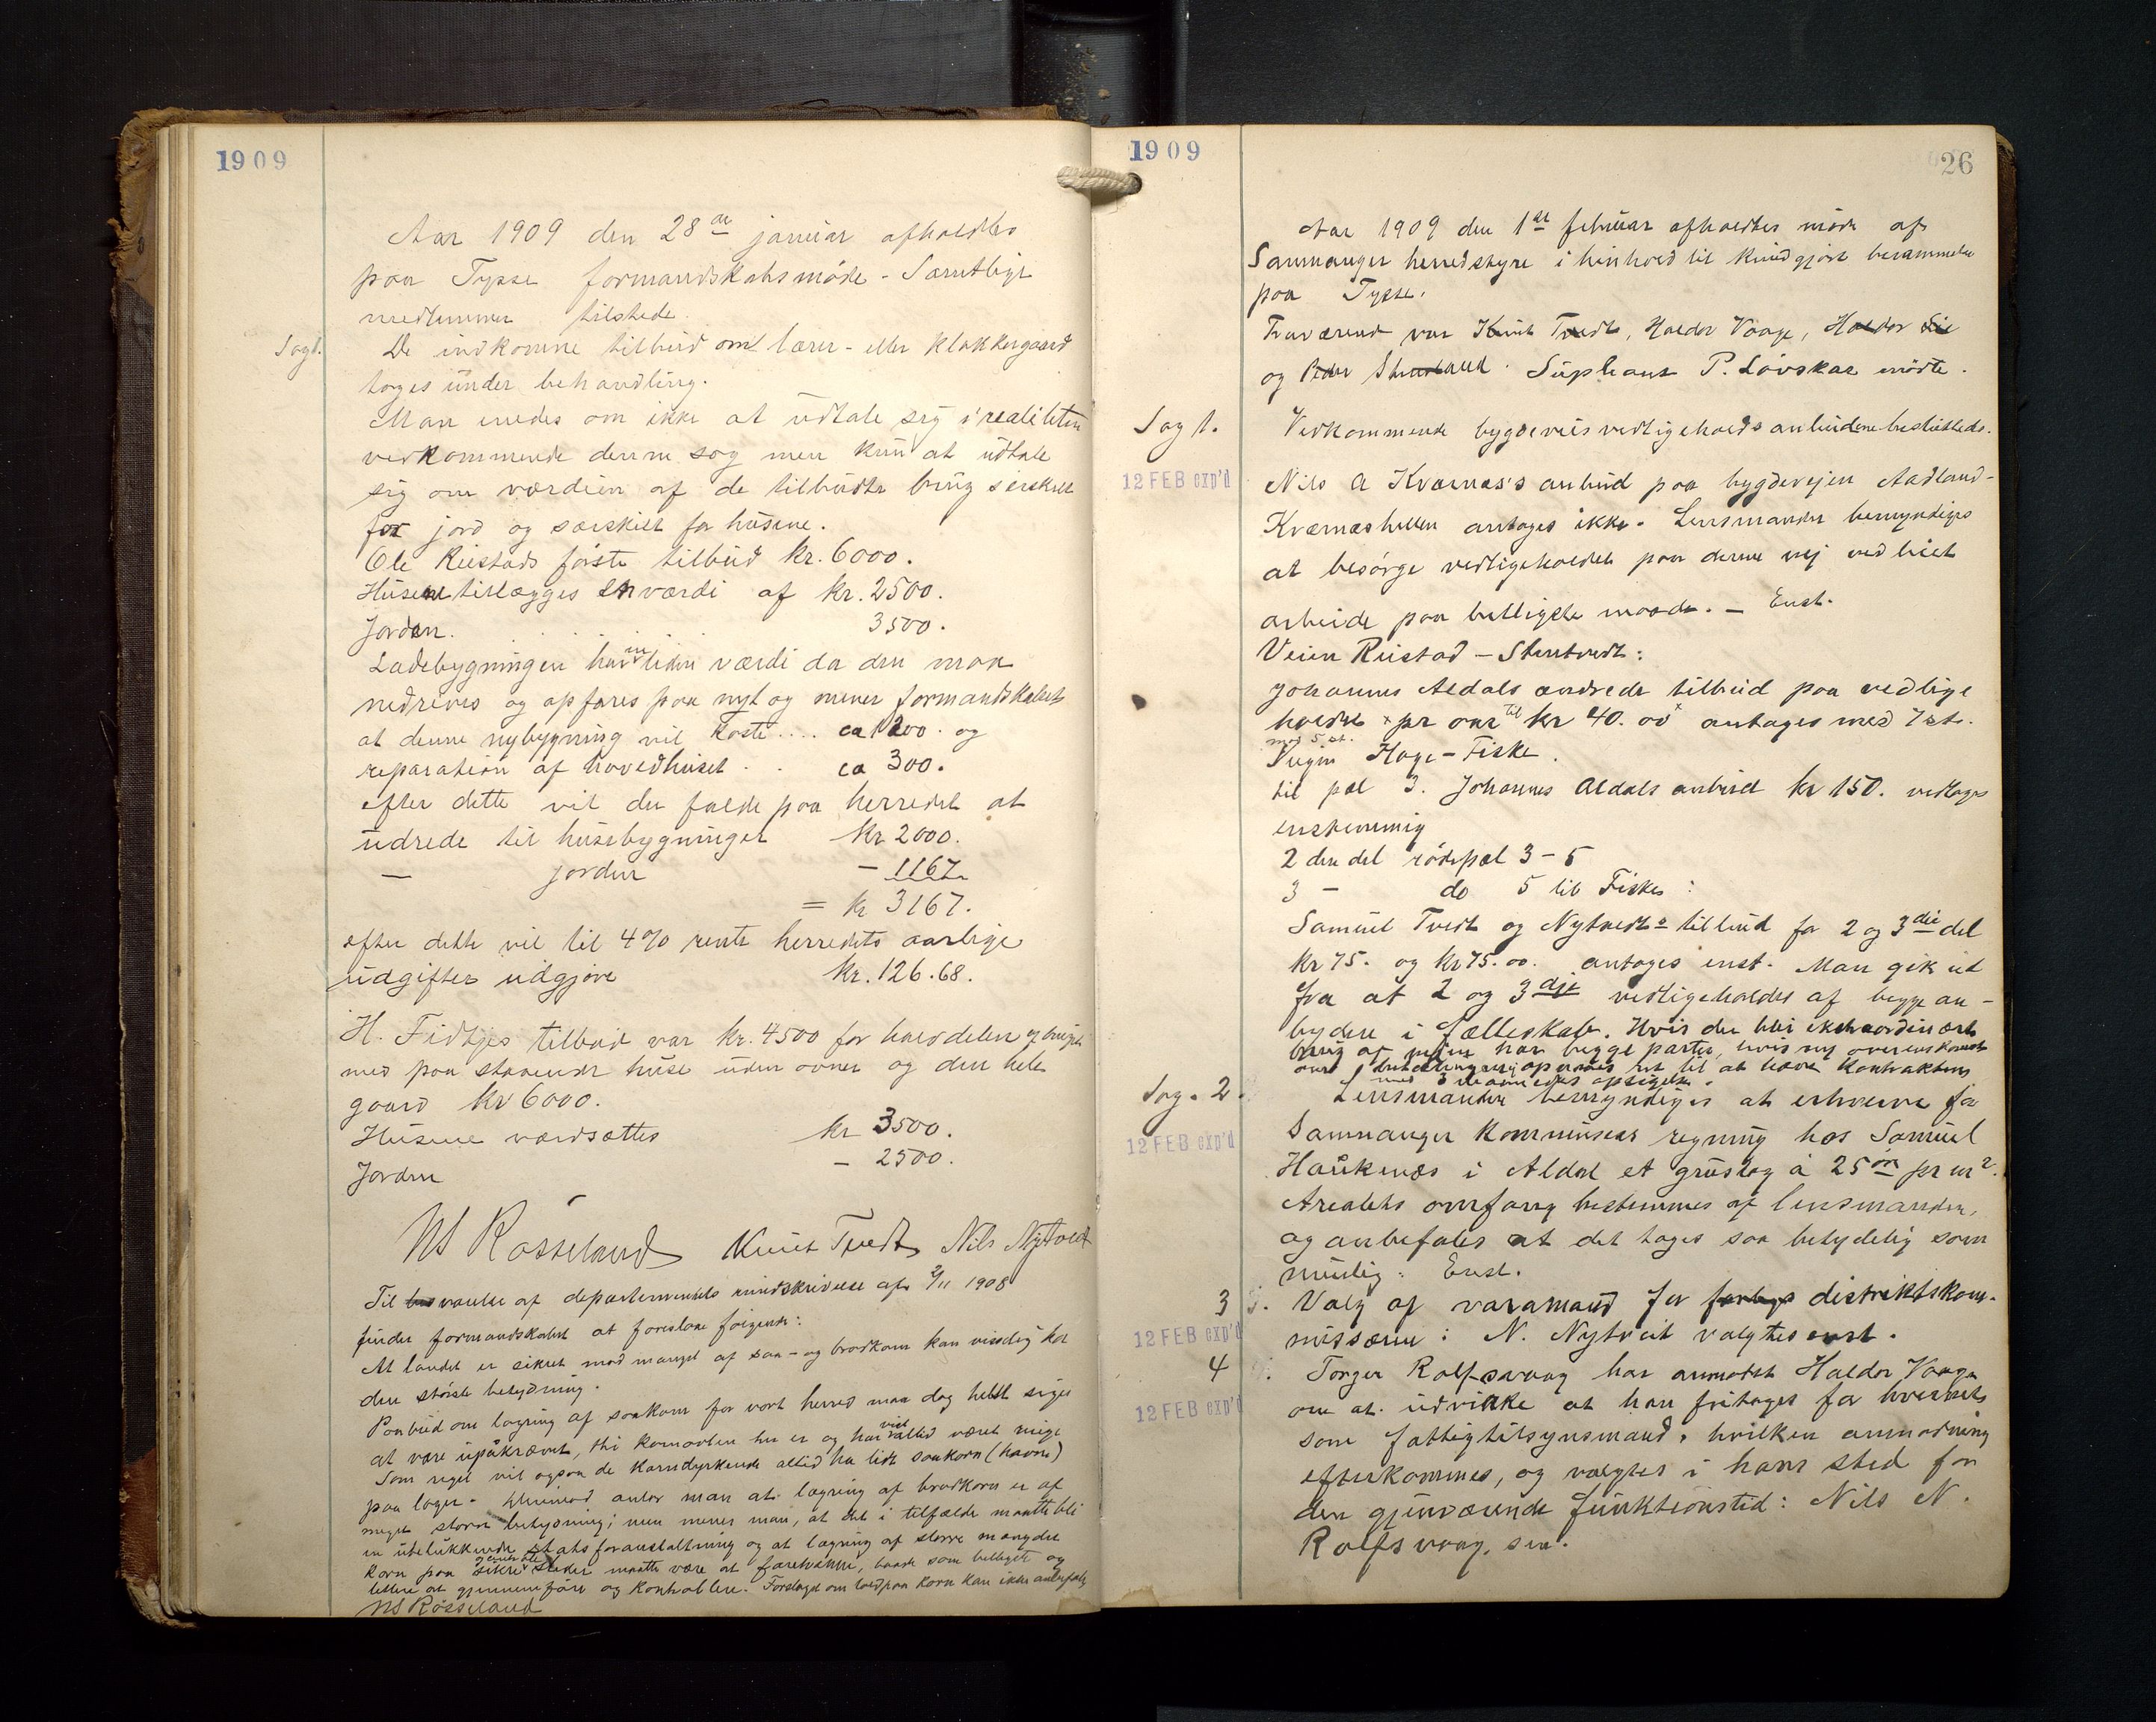 1909
Aar 1909 den 28de januar afholdtes
paa Tysse formandskabsmöde - Samtlige
medlemmer tilstede.
Sag 1.
De indkomne tilbud om lærer- eller klokkergaard
toges under behandling.
Man enedes om ikke at udtale sig i realiteten
vedkommende denne sag men kun at udtale
sig om værdien af de tilbudte brug særskilt
for jord og særskilt for husene.
Ole Reistads förste tilbud kr. 6000.
Husene tillægges en værdi af kr. 2500.
Jorden. 3500.
Ladebygningen har en liden værdi da den maa
nedrives og opföres paa nyt og mener formandskabet
at denne nybygning vil koste.... ca 1200. og
reparation af hovedhuset . . ca 300.
efter dette vil der falde paa herredet at
udrede til husebygninger kr 2000.
— jorden — 1167.
= kr 3167.
efter dette vil til 4% rente herredets aarlige
udgifter udgjöre kr. 126.68.
H. Fidtjes tilbud var kr. 4500 for halvdelen
med paa staaende huse uden ovner og den hele
gaard kr 6000.
Husene værdsættes kr 3500.
Jorden — 2500.
NS Rösseland Knut Tvedt Nils Nytvedt
Til besvarelse af departementets rundskrivelse af 2/11 1908
finder formandskabet at foreslaa fölgende:
At landet er sikret mod mangel af saa- og brödkorn kan visselig ha
den störste betydning.
Paabud om lagring af saakorn for vort herred maa dog helst siges
at være upåkrævet, thi kornavlen her er og har vist altid været ringe
Som regel vil ogsaa de korndyrkende altid ha lidt saakorn (havre)
paa lager. Derimod antar man at lagring af brödkorn er af
meget større betydning; men mener man, at det i tilfælde maatte bli
en udelukkende statsforanstaltning og at lagring af större mængder
korn paa sikre steder maatte være at foretrække, baade som billigst og
lettere at gjennemföre og kontrollere. Forslaget om told paa korn kan ikke anbefales
NS Rösseland
1909
26
Aar 1909 den 1ste februar afholdtes möde af
Samnanger herredstyre i henhold til kundgjort berammelse
paa Tysse.
Fraværend var Knut Tvedt, Haldor Vaage, Haldor Lie
og Peder Supleant P. Lövskar mödte.
Sag 1.
Vedkommende bygdeveis vedligeholds anbudene besluttedes.
12 FEB exp'd
Nils A Kvernes's anbud paa bygdevejen Aadland-
Kværneshellen antages ikke. Lensmanden bemyndiges
at besörge vedligeholdet paa denne vej ved leiet
arbeide paa billigste maade. — Enst.
Veien Reistad — Stentvedt:
Johannes Aldals ændrede tilbud paa vedlige
holdet pr aar til kr 40.00 antages med 7 st.
mod 5 st.
Veigen Hage - Fiske.
til pæl 3. Johannes Aldals anbud kr 150. vedtages
enstemmig
2 den del rödepæl 3 - 5
3 — do 5 til Fiske:
Samuel Tvedt og Nytvedts tilbud for 2 og 3die del
kr 75. og kr 75.00. antages enst. Man gik ud
fra at 2 og 3die vedligeholdes af begge an-
bydere i fælleskab. Hvis der blir ekstraordinært
brug af veien har begge parter, hvis ny overenskomst
om betaling ej opnaaes ret til at hæve kontrakten
med 3 maaneders opsigelse.
Sag. 2.
Lensmanden bemyndiges at erhverve for
12 FEB exp'd
Samnanger kommunes regning hos Samuel
Haukenæs i Aldal et grustag à 25 öre pr m2.
Arealets omfang bestemmes af lensmanden,
og anbefales at det tages saa betydelig som
mulig: Enst.
3
Valg af varamand for distriktskom-
12 FEB exp'd
missæren: N. Nytveit valgtes enst.
4
Torger Rolfsvaag har anmodet Haldor Vaage
12 FEB exp'd
om at udvirke at han fritages for hvervet
som fattigtilsynsmand, hvilken anmodning
efterkommes, og valgtes i hans sted for
den gjenværende funktionstid: Nils N.
Rolfsvaag, sen.